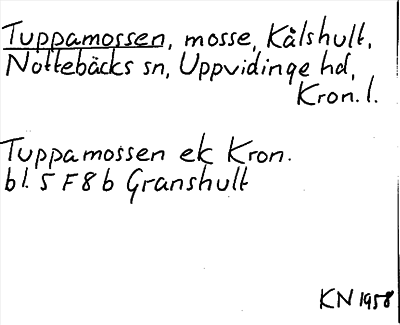 Tuppamossen, mosse, Kålshult,
Nottebäcks sn, Uppvidinge hd,
Kron. l.
Tuppamossen ek Kron.
bl. 5 F 8 b Granshult
KN 1958